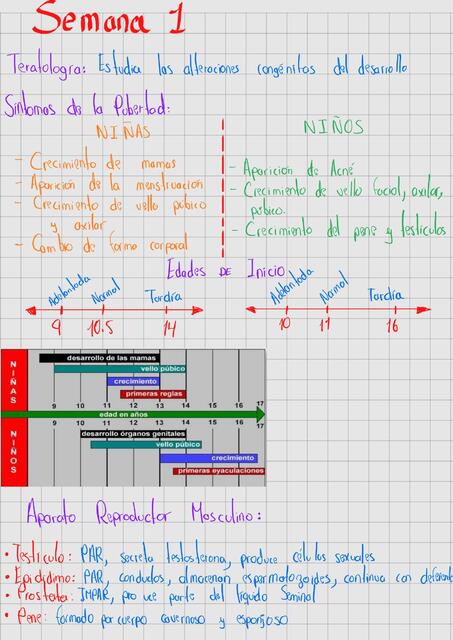 Semana 1
Teratologra: Estudia las alteraciones congénitas del desarrollo
Síntomas de la Pubertad:
NIÑAS
- Crecimiento de mamas
- Aparición de la menstruación
- Crecimiento de vello púbico
y axilar
- Cambio de forma corporal
NIÑOS
- Aparición de Acné
- Crecimiento de vello facial, axilar,
púbico.
- Crecimiento del pene y testículos
Edades DE Inicio
Adelantada Normal Tardía
9 10.5 14
Adelantada Normal Tardía
10 11 16
NIÑAS
desarrollo de las mamas
vello púbico
crecimiento
primeras reglas
9 10 11 12 13 14 15 16 17
edad en años
9 10 11 12 13 14 15 16 17
NIÑOS
desarrollo órganos genitales
vello púbico
crecimiento
primeras eyaculaciones
Aparato Reproductor Masculino:
• Testículo: PAR, secreta testosterona, produce células sexuales
• Epidídimo: PAR, conductos, almacenan espermatozoides, continua con deferente
• Próstata: IMPAR, pro uce parte del líquido Seminal
• Pene: formado por cuerpo cavernoso y esponjoso